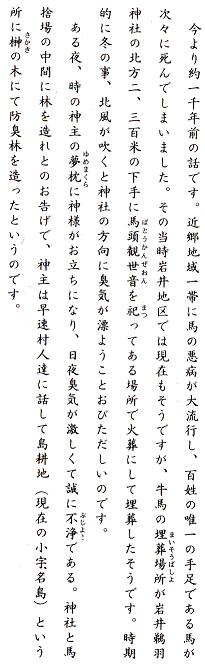 今より約一千年前の話です。近郷地域一帯に馬の悪病が大流行し、百姓の唯一の手足である馬が
次々に死んでしまいました。その当時岩井地区では現在もそうですが、牛馬の埋葬場所が岩井鵜羽
神社の北方二、三百米の下手に馬頭観世音を祀ってある場所で火葬にして埋葬したそうです。時期
的に冬の事、北風が吹くと神社の方向に臭気が漂ようことおびただしいのです。
ある夜、時の神主の夢枕に神様がお立ちになり、日夜臭気が激しくて誠に不浄である。神社と馬
捨場の中間に林を造れとのお告げで、神主は早速村人達に話して島耕地（現在の小字名島）という
所に榊の木にて防臭林を造ったというのです。